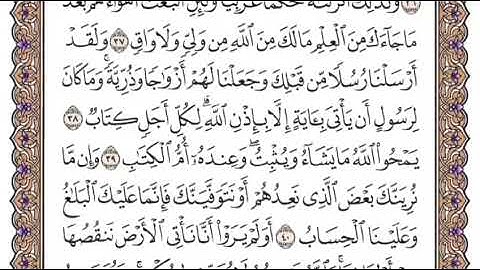 وَكَذَٰلِكَ أَنزَلْنَٰهُ حُكْمًا عَرَبِيًّا ۚ وَلَئِنِ ٱتَّبَعْتَ أَهْوَآءَهُم بَعْدَ
مَا جَآءَكَ مِنَ ٱلْعِلْمِ مَالَكَ مِنَ ٱللَّهِ مِن وَلِىٍّ وَلَا وَاقٍ ٣٧ وَلَقَدْ
أَرْسَلْنَا رُسُلًا مِّن قَبْلِكَ وَجَعَلْنَا لَهُمْ أَزْوَٰجًا وَذُرِّيَّةً ۚ وَمَا كَانَ
لِرَسُولٍ أَن يَأْتِىَ بِـَٔايَةٍ إِلَّا بِإِذْنِ ٱللَّهِ ۗ لِكُلِّ أَجَلٍ كِتَابٌ ٣٨
يَمْحُوا۟ ٱللَّهُ مَا يَشَآءُ وَيُثْبِتُ ۖ وَعِندَهُۥٓ أُمُّ ٱلْكِتَٰبِ ٣٩ وَإِن مَّا
نُرِيَنَّكَ بَعْضَ ٱلَّذِى نَعِدُهُمْ أَوْ نَتَوَفَّيَنَّكَ فَإِنَّمَا عَلَيْكَ ٱلْبَلَٰغُ
وَعَلَيْنَا ٱلْحِسَابُ ٤٠ أَوَلَمْ يَرَوْا۟ أَنَّا نَأْتِى ٱلْأَرْضَ نَنقُصُهَا